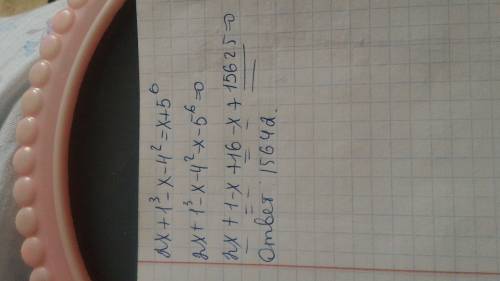 2x+1³-x-4²=x+5⁶
2x+1³-x-4²-x-5⁶=0
2x+1-x+16-x+15625=0
Ответ: 15642.